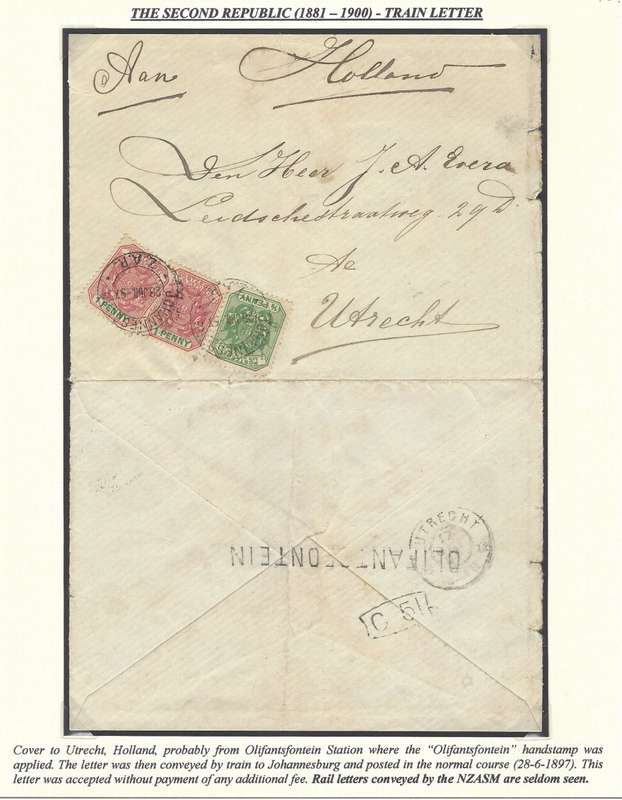 THE SECOND REPUBLIC (1881 – 1900) - TRAIN LETTER
Aan Holland
Den Heer J. A. Evera
Leidschestraatweg 29D.
te
Utrecht
Z.A.R.
1 PENNY
1 PENNY
UTRECHT
OLIFANTSFONTEIN
C 51
Cover to Utrecht, Holland, probably from Olifantsfontein Station where the “Olifantsfontein” handstamp was
applied. The letter was then conveyed by train to Johannesburg and posted in the normal course (28-6-1897). This
letter was accepted without payment of any additional fee. Rail letters conveyed by the NZASM are seldom seen.